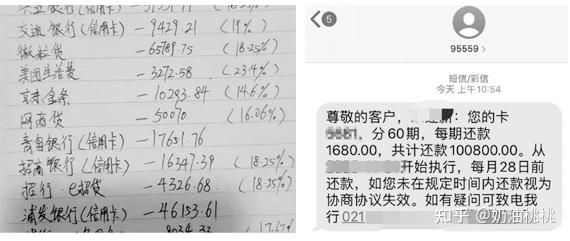 交通银行(信用卡) — 9429.21 (19%)
微粒贷 — 65789.75 (18.25%)
美团生活费 — 3272.58 (23.4%)
京东金条 — 10293.84 (14.6%)
网商贷 — 50070 (16.06%)
青岛银行(信用卡) — 17651.76
招商银行(信用卡) — 16347.39 (18.25%)
招行·e招贷 — 4326.68 (18.25%)
浦发银行(信用卡) — 46153.61
5
95559 >
短信/彩信
今天 上午 10:54
尊敬的客户，：您的卡
，分60期，每期还款
1680.00，共计还款100800.00。从
开始执行，每月28日前
还款，如您未在规定时间内还款视为
协商协议失效。如有疑问可致电我
行021
知乎 @奶油桃桃